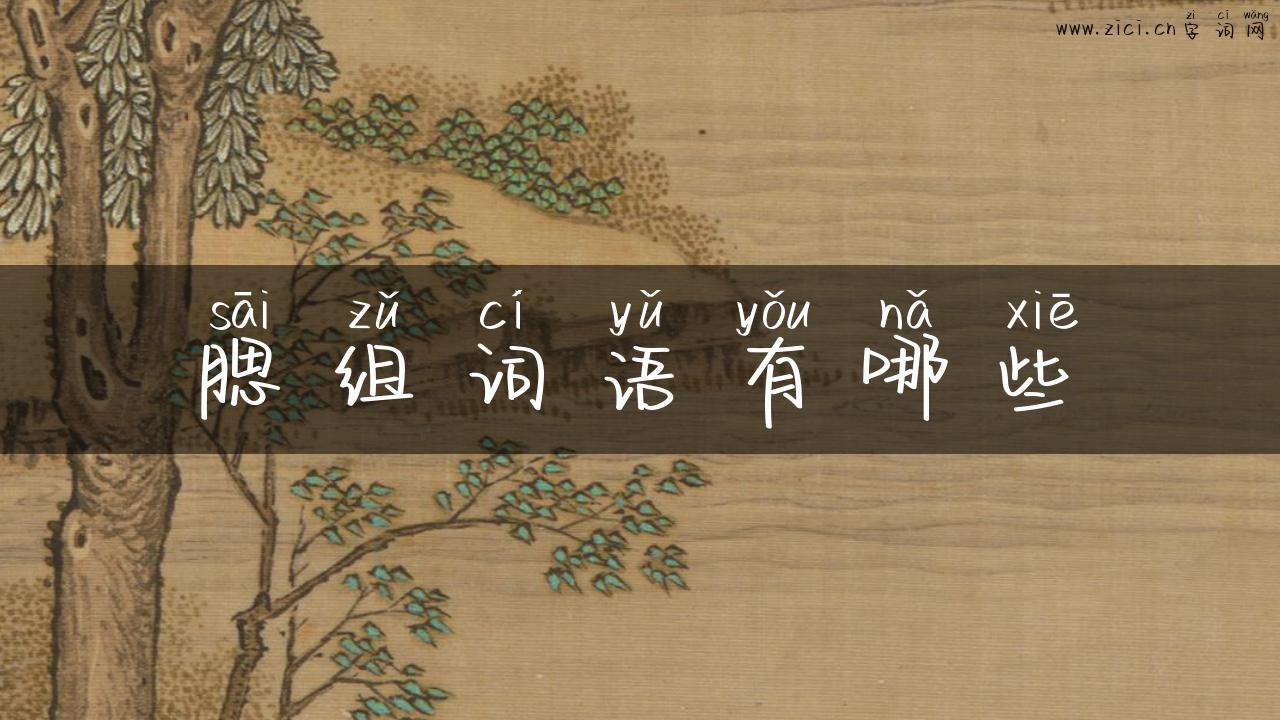 zì cí wǎng
www.zici.cn 字词网
sāi zǔ cí yǔ yǒu nǎ xiē
腮组词语有哪些